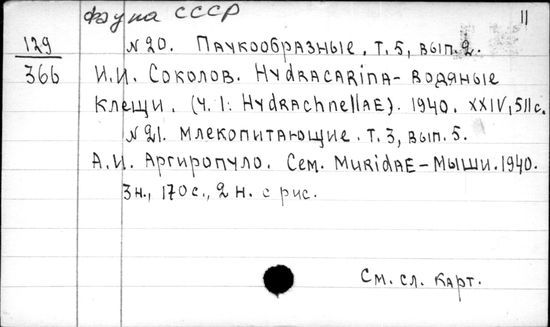 Фауна СССР
11
129
366
№ 20. Паукообразные. т. 5, вып. 2.
И.И. Соколов. Hydracarina - водяные
клещи. (ч. I: Hydrachnellae). 1940. XXIV, 511с.
№ 21. Млекопитающие. т. 3, вып. 5.
А.И. Аргиропуло. Сем. Muridae - мыши. 1940.
3н., 170с., 2н. с рис.
См. сл. карт.